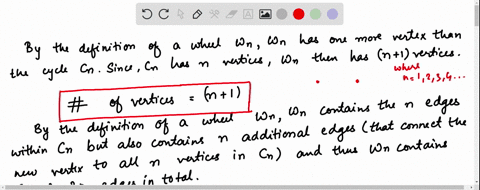 By the definition of a wheel Wn, Wn has one more vertex than
the cycle Cn. Since, Cn has n vertices, Wn then has (n+1) vertices.
where
n=1,2,3,4...
# of vertices = (n+1)
By the definition of a wheel Wn, Wn contains the n edges
within Cn but also contains n additional edges (that connect the
new vertix to all n vertices in Cn) and thus Wn contains
edges in total.